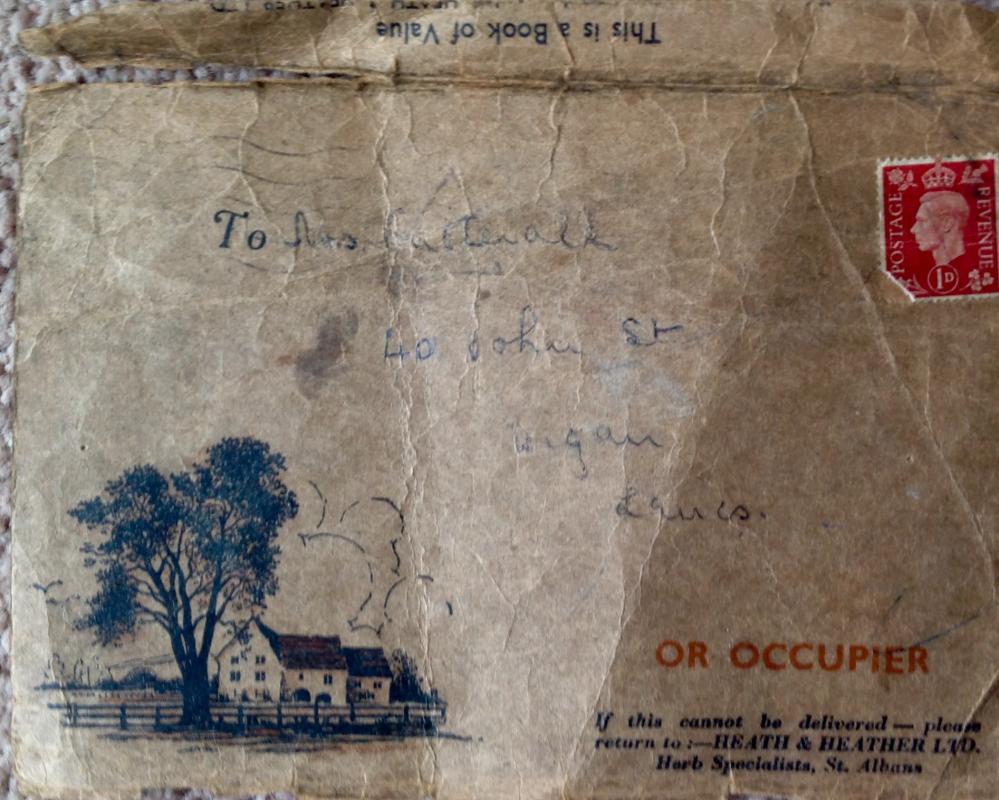 This is a Book of Value
POSTAGE REVENUE
1D
To Mrs. Catterall
40 John St
Wigan
Lancs.
OR OCCUPIER
If this cannot be delivered — please
return to :—HEATH & HEATHER LTD.
Herb Specialists, St. Albans